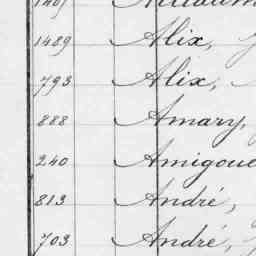 1489 Alix,
793 Alix,
888 Amary,
240 Amigoue
813 André,
703 André,